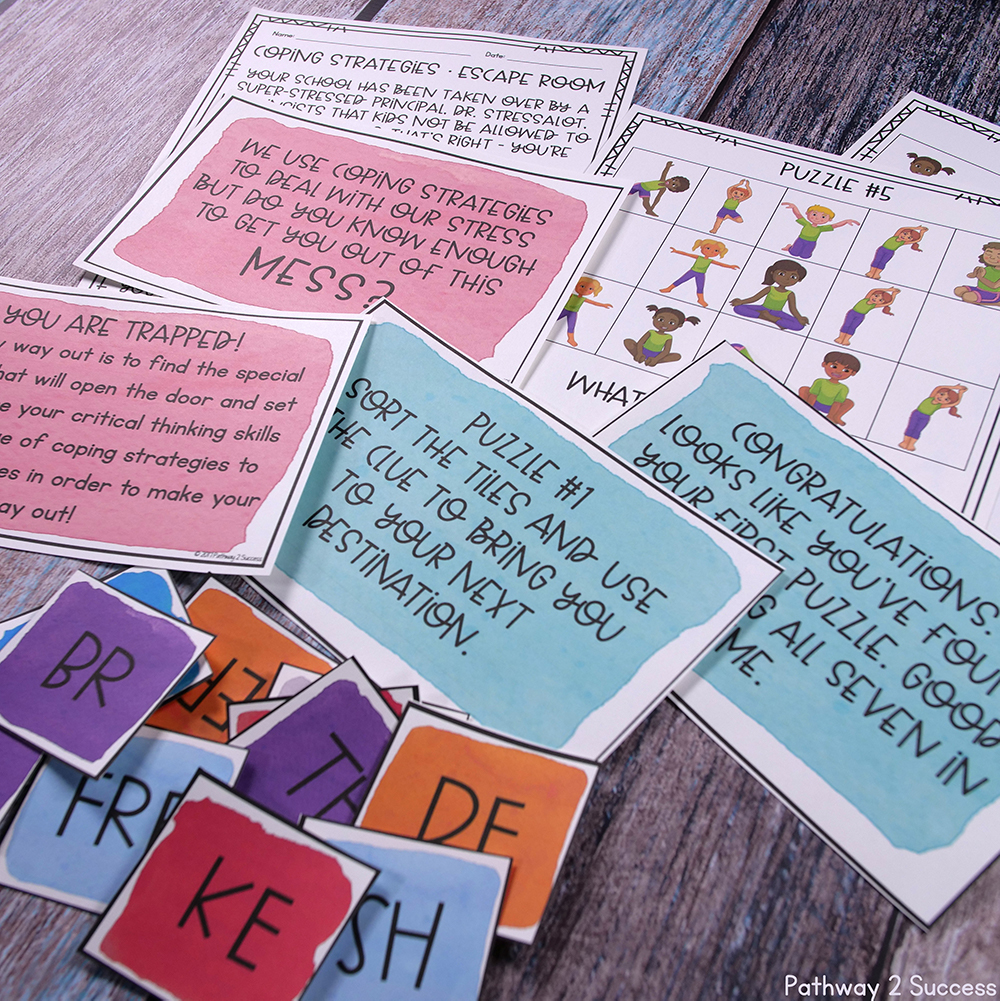 Name:
Date:
COPING STRATEGIES • ESCAPE ROOM
YOUR SCHOOL HAS BEEN TAKEN OVER BY A
SUPER-STRESSED PRINCIPAL, DR. STRESSALOT.
THAT KIDS NOT BE ALLOWED TO
THAT'S RIGHT - YOU'RE
WE USE COPING STRATEGIES
TO DEAL WITH OUR STRESS
BUT DO YOU KNOW ENOUGH
TO GET YOU OUT OF THIS
MESS?
PUZZLE #5
WHAT
YOU ARE TRAPPED!
way out is to find the special
that will open the door and set
your critical thinking skills
of coping strategies to
in order to make your
out!
© 2017 Pathway 2 Success
PUZZLE #1
SORT THE TILES AND USE
THE CLUE TO BRING YOU
TO YOUR NEXT
DESTINATION.
CONGRATULATIONS.
LOOKS LIKE YOU'VE FOUN
YOUR FIRST PUZZLE. GOOD
G ALL SEVEN IN
ME.
BR
ER
FRE
TH
DE
KE
SH
Pathway 2 Success